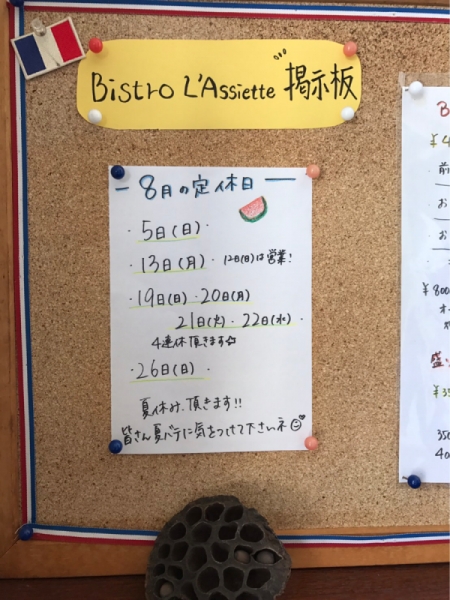 Bistro L'Assiette 掲示板
8月の定休日
・5日(日)・
・13日(月)・12日(日)は営業!
・19日(日)・20日(月)
21日(火)・22日(水)・
4連休頂きます☆
・26日(日)・
夏休み、頂きます!!
皆さん夏バテに気をつけて下さいネ
¥4
前
お
お
¥800
オー
盛
¥35
350
40